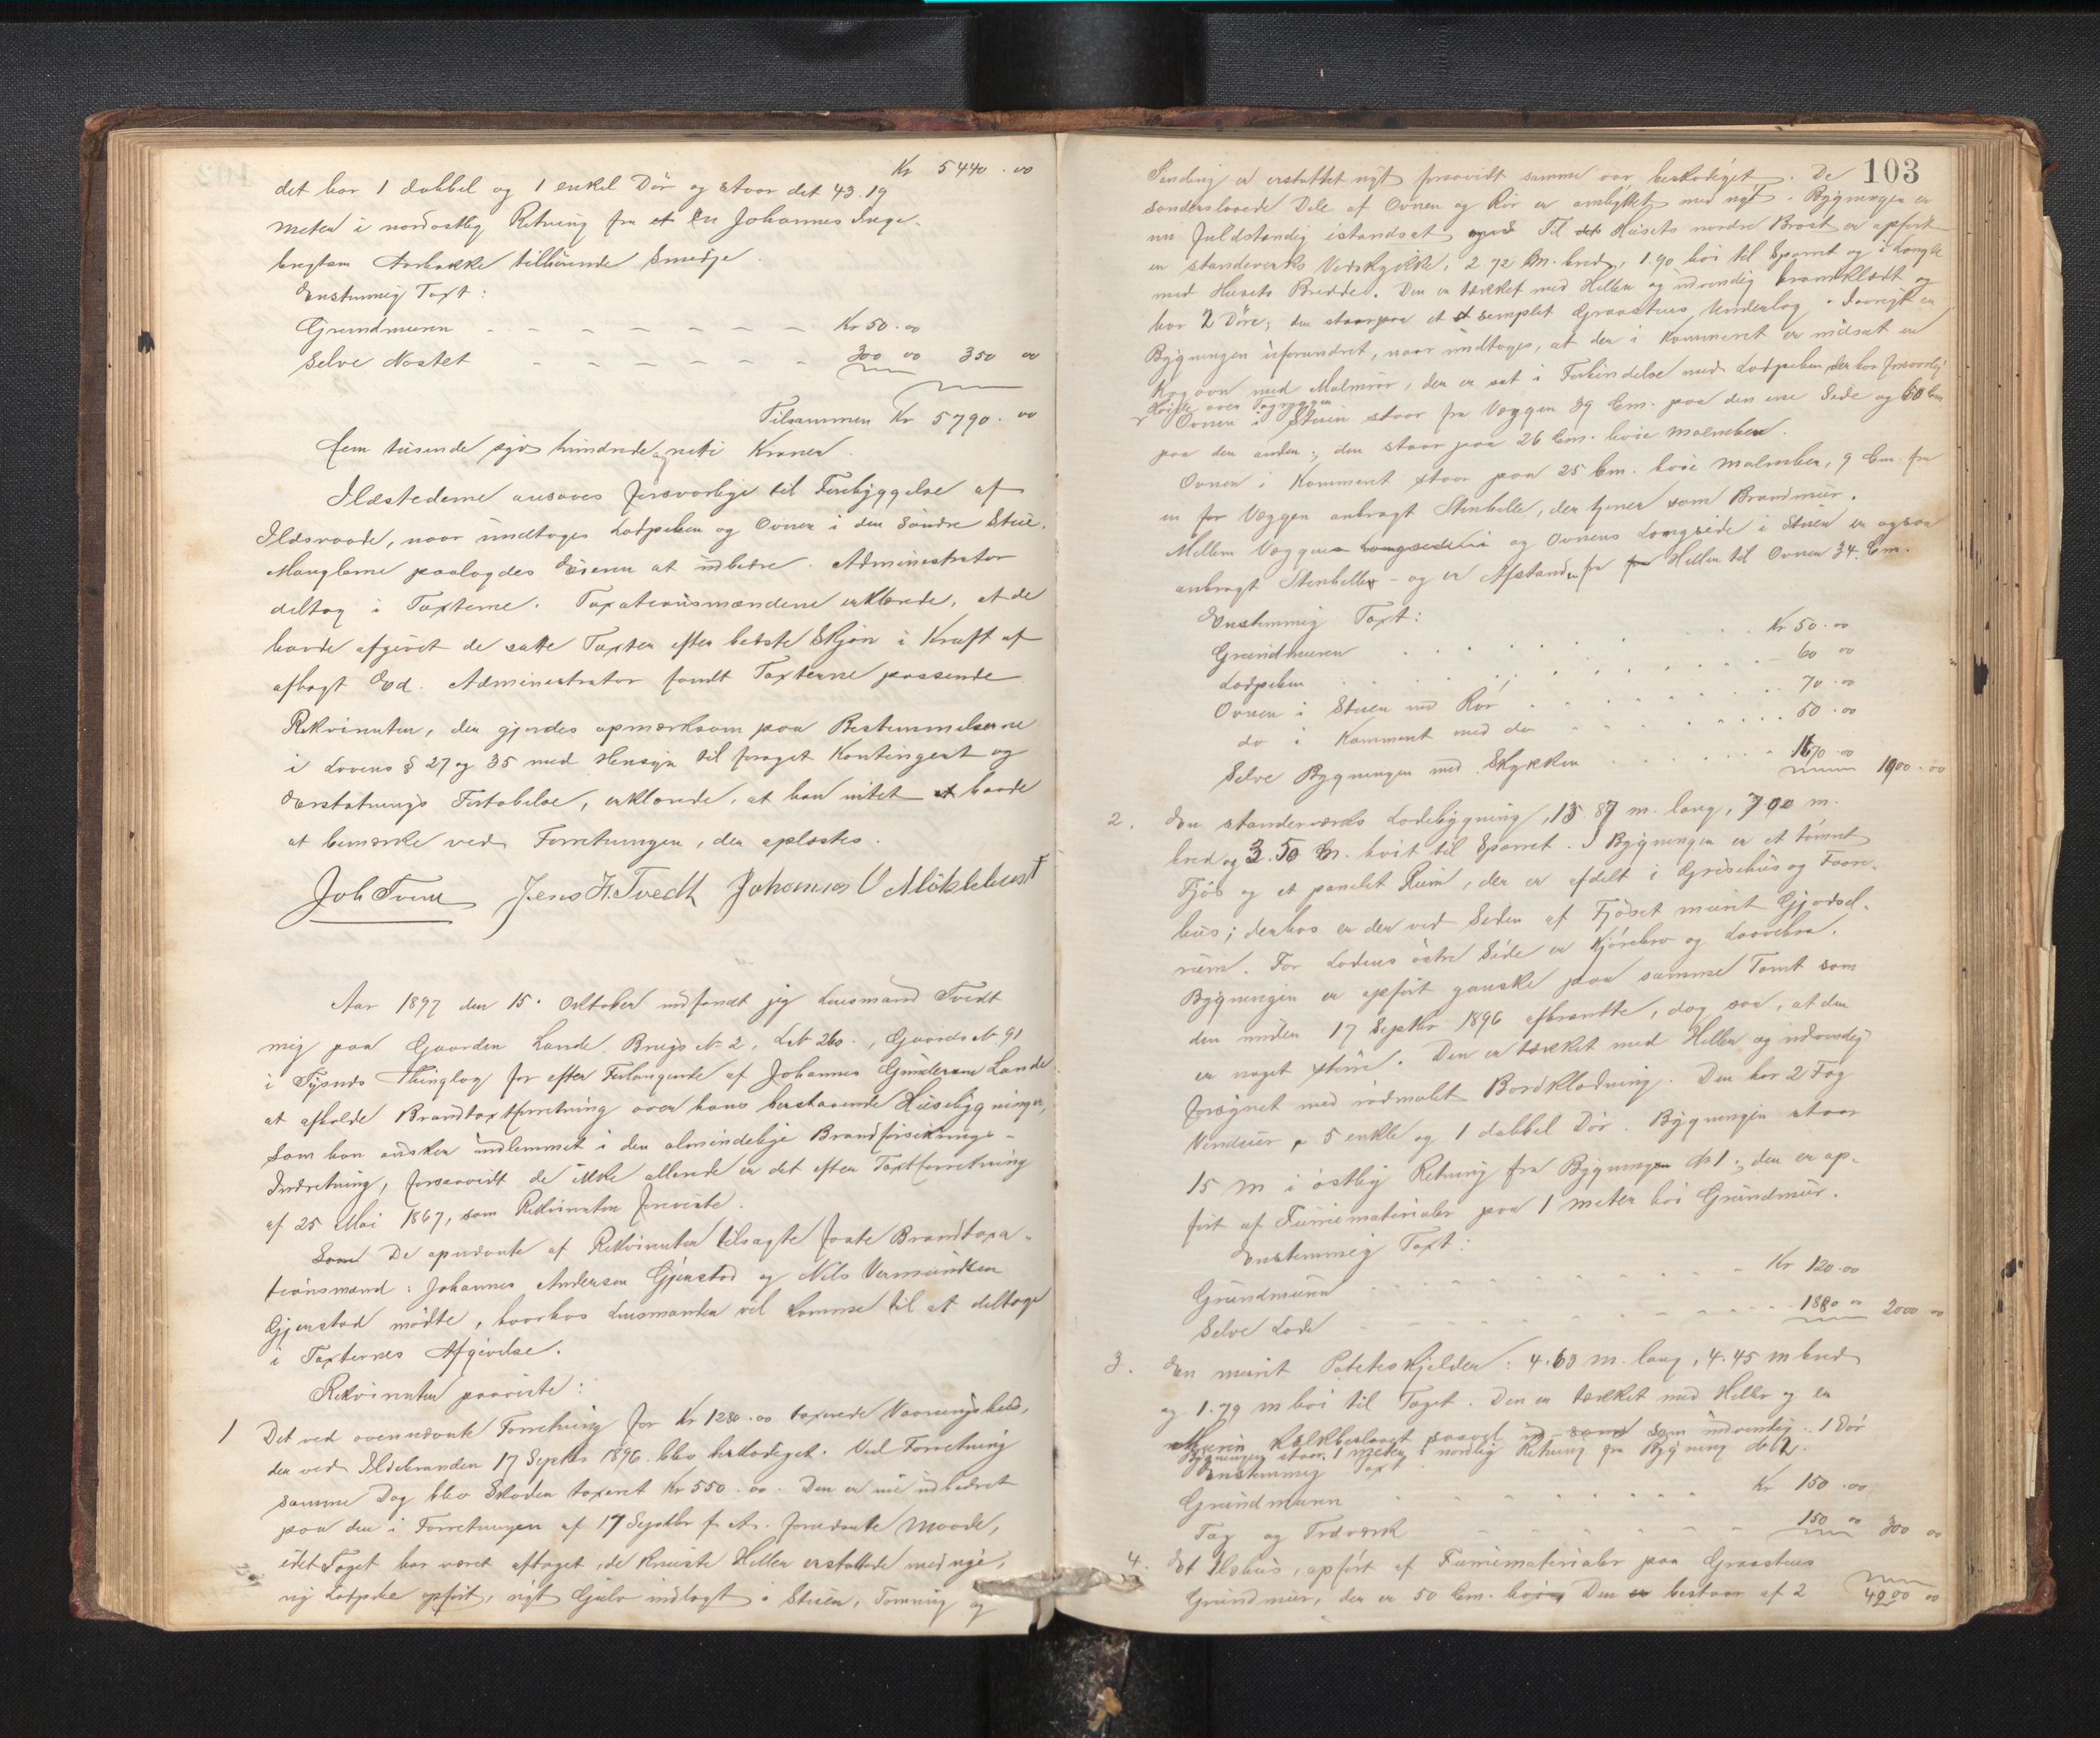 Kr 5440.00
det har 1 dobbel og 1 enkel Dør og staar det 43.19
meter i nordostlig Retning fra et en Johannes Inge-
brigtsen Aarbakke tilhørende Smedje.
Enstemmig Taxt:
Grundmuren Kr 50.00
Selve Nøstet 300 00 350 00
Tilsammen Kr 5790.00
fem tusende syv hundrede og niti Kroner.
Ildstederne ansaaes forsvarlige til Forebyggelse af
Ildsvaade, naar undtages Ladpiben og Ovnen i den søndre Stue.
Manglerne paalagdes Eieren at udbedre. Administrator
deltog i Taxterne. Taxationsmændene erklærede, at de
havde afgivet de satte Taxter efter bedste Skjøn i Kraft af
aflagt Ed. Administrator fandt Taxterne passende
Rekvirenten, der gjordes opmærksom paa Bestemmelserne
i Lovens § 27 og 35 med Hensyn til forøget Kontingent og
Erstatnings Fortabelse, erklærede, at han intet at havde
at bemærke ved Forretningen, der oplæstes.
Joh Tveit Jens H. Tvedt Johannes O Møklebust
Aar 1897 den 15. Oktober indfandt jeg Lensmand Tvedt
mig paa Gaarden Lande, Brugs No 2, L No 260., Gaards No 91
i Tysnes Thinglag for efter Forlangende af Johannes Gundersen Lande
at afholde Brandtaxtforretning over hans herstaaende Husebygninger,
som han ønsker indlemmet i den almindelige Brandforsikrings-
Indretning, forsaavidt de ikke allerede er det efter Taxtforretning
af 25 Mai 1867, som Rekvirenten foreviste.
Som De opnævnte af Rekvirenten tilsagte faste Brandtaxa-
tionsmænd: Johannes Andersen Gjerstad og Nils Vermundsen
Gjerstad mødte, hvorhos Lensmanden vil komme til at deltage
i Taxternes Afgivelse.
Rekvirenten paaviste:
1 Det ved ovennævnte Forretning for Kr 1280.00 taxerede Vaaningshus,
der ved Ildebranden 17 Septbr 1896 blev beskadiget. Ved Forretning
samme Dag blev Skaden taxeret Kr 550.00. Den er nu udbedret
paa den i Forretningen af 17 Septbr f. A. forudsatte Maade,
idet Taget har været aftaget, de knuste Heller erstattede med nye,
ny Ladpibe opført, nyt Gulv indlagt i Stuen, Tømring og
103
Panding er erstattet nyt forsaavidt samme var beskadiget. De
sønderslaaede Dele af Ovnen og Rør er ombyttet med nyt. Bygningen er
nu fuldstændig istandsat Til det Husets nordre Brøst er opført
en standerverks Vedskykkje, 2.72 m. bred, 1.90 høi til Sparret og i Længde
med Husets Bredde. Den er tækket med Heller og udvendig bordklædt og
har 2 Døre; den staar paa et simpelt Graastens Underlag. Iøvrigt er
Bygningen uforandret, naar undtages, at der i Kammeret er indsat en
Kogovn med Malmrør, der er sat i Forbindelse med Ladpiben, der har forsvarlig
Høide over Tagryggen
Ovnen i Stuen staar fra Væggen 39 Cm. paa den ene Side og 50 Cm
paa den anden; den staar paa 26 Cm. høie Malmben.
Ovnen i Kammeret staar paa 25 Cm. høie Malmben, 9 Cm. fra
en for Væggen anbragt Stenhelle, der tjener som Brandmur.
Mellem Væggene Langsiden i og Ovnens Langside i Stuen er ogsaa
anbragt Stenheller - og er Afstanden fra fra Hellen til Ovnen 34 Cm.
Enstemmig Taxt:
Grundmuren Kr 50.00
Ladpiben 60 00
Ovnen i Stuen med Rør 70.00
do i Kammeret med do 50.00
Selve Bygningen med Skykken 1670.00 1900.00
2. En standerværks Ladebygning, 13.87 m. lang, 7.00 m.
bred og 3.50 m. høit til Sparret. I Bygningen er et tømret
Fjøs og et panelet Rum, der er afdelt i Grisehus og Faare-
hus; derhos er der ved Siden af Fjøset muret Gjødsel-
rum. For Ladens østre Side er Kjørebro og Laavebro.
Bygningen er opført ganske paa samme Tomt som
den under 17 Septbr 1896 afbrændte, dog saa, at den
er noget større. Den er tækket med Heller og udvendig
forsynet med rødmalet Bordklædning. Den har 2 Fag
Vinduer, 5 enkle og 1 dobbel Dør. Bygningen staar
15 m i østlig Retning fra Bygningen No 1; den er op-
ført af Furumaterialer paa 1 meter høi Grundmur.
Enstemmig Taxt:
Grundmuren Kr 120.00
Selve Lade 1880 00 2000.00
3. En muret Potetes Kjelder: 4.63 m. lang, 4.45 m bred
og 1.79 m høi til Taget. Den er tækket med Heller og er
Muren Kalkbeslaaet saavel ud- som indvendig. 1 Dør
Bygningen staar 1 meter i nordlig Retning fra Bygning No 2.
Enstemmig Taxt
Grundmuren Kr 150.00
Tag og Træværk 150 00 300 00
4. Et Ildhus, opført af Furumaterialer paa Graastens
Grundmur, der er 50 Cm. høi. Den er bestaar af 2
4200 00